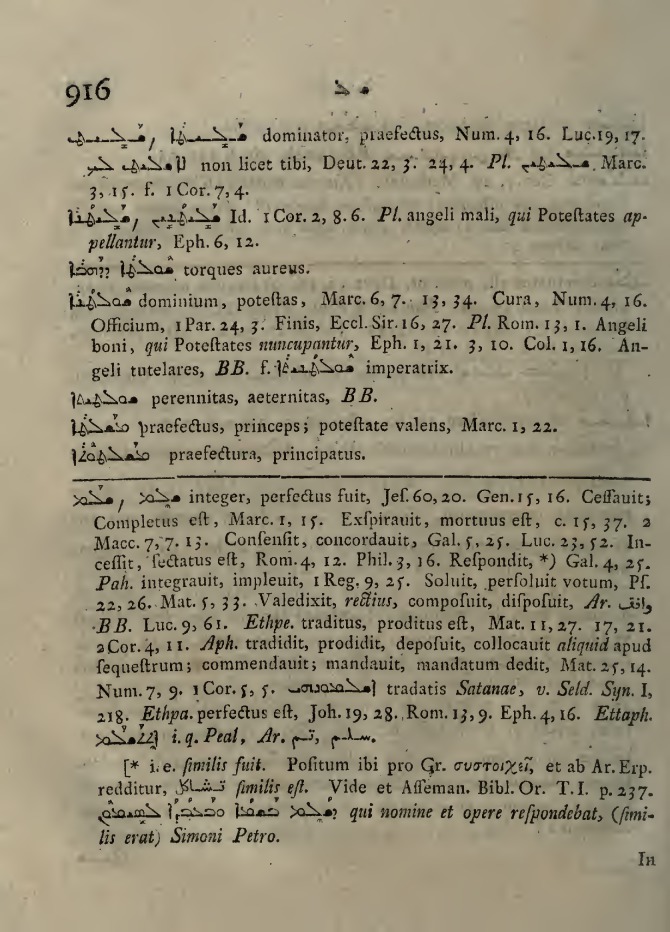 916 ܫܠ
ܫܰܠܺܝܛ, ܫܰܠܺܝܛܳܐ dominator, praefectus, Num. 4, 16. Luc. 19, 17.
ܠܐ ܫܠܝܛ ܠܟ non licet tibi, Deut. 22, 3. 24, 4. Pl. ܫܠܝܛܝܢ. Marc.
3, 15. f. 1 Cor. 7, 4.
Id. 1 Cor. 2, 8. 6. Pl. angeli mali, qui Poteſtates ap-
pellantur, Eph. 6, 12.
torques aureus.
ܫܘܠܛܢܐ dominium, poteſtas, Marc. 6, 7. 13, 34. Cura, Num. 4, 16.
Officium, 1 Par. 24, 3. Finis, Eccl. Sir. 16, 27. Pl. Rom. 13, 1. Angeli
boni, qui Poteſtates nuncupantur, Eph. 1, 21. 3, 10. Col. 1, 16. An-
geli tutelares, BB. f. imperatrix.
perennitas, aeternitas, BB.
praefectus, princeps; poteſtate valens, Marc. 1, 22.
praefectura, principatus.
ܫܠܡ integer, perfectus fuit, Jeſ. 60, 20. Gen. 15, 16. Ceſſauit;
Completus eſt, Marc. 1, 15. Exſpirauit, mortuus eſt, c. 15, 37. 2
Macc. 7, 7. 13. Conſenſit, concordauit, Gal. 5, 25. Luc. 23, 52. In-
ceſſit, ſectatus eſt, Rom. 4, 12. Phil. 3, 16. Reſpondit, *) Gal. 4, 25.
Pah. integrauit, impleuit, 1 Reg. 9, 25. Soluit, perſoluit votum, Pſ.
22, 26. Mat. 5, 33. Valedixit, rectius, compoſuit, diſpoſuit, Ar. وافق
BB. Luc. 9, 61. Ethpe. traditus, proditus eſt, Mat. 11, 27. 17, 21.
2 Cor. 4, 11. Aph. tradidit, prodidit, depoſuit, collocauit aliquid apud
ſequeſtrum; commendauit; mandauit, mandatum dedit, Mat. 25, 14.
Num. 7, 9. 1 Cor. 5, 5. tradatis Satanae, v. Seld. Syn. I,
218. Ethpa. perfectus eſt, Joh. 19, 28. Rom. 13, 9. Eph. 4, 16. Ettaph.
i. q. Peal, Ar. تم, سلم.
[* i. e. ſimilis fuit. Poſitum ibi pro Gr. συστοιχεῖ, et ab Ar. Erp.
redditur, تشاكل ſimilis eſt. Vide et Aſſeman. Bibl. Or. T. I. p. 237.
qui nomine et opere reſpondebat, (ſimi-
lis erat) Simoni Petro.
In